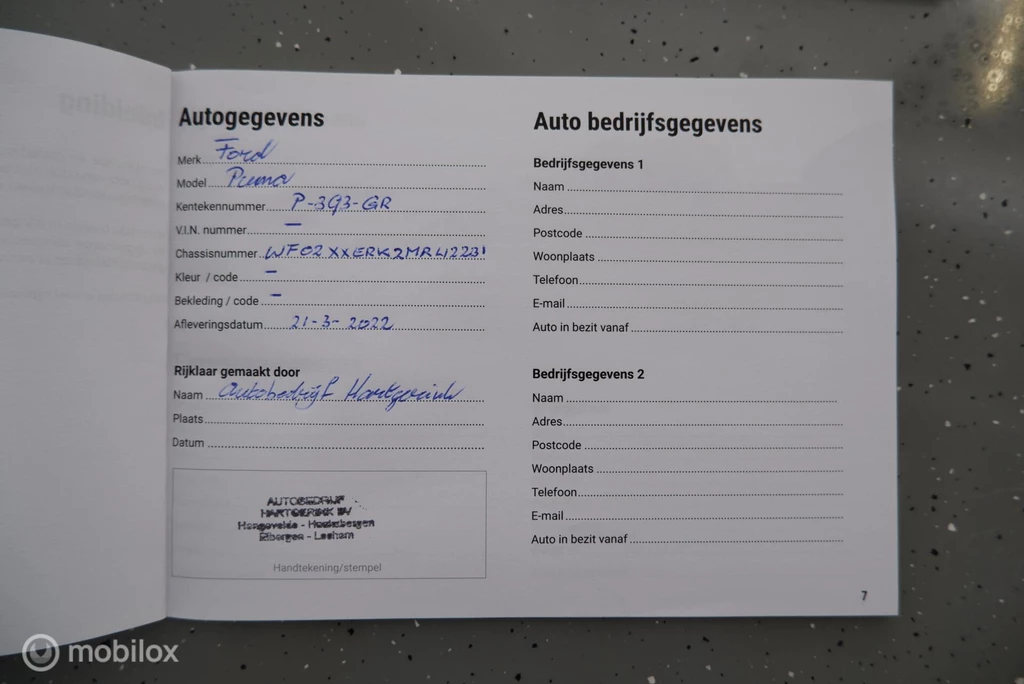 Autogegevens
Merk Ford
Model Puma
Kentekennummer P-393-GR
V.I.N. nummer —
Chassisnummer WF02XXERK2MR42231
Kleur / code —
Bekleding / code —
Afleveringsdatum 21-3-2022
Rijklaar gemaakt door
Naam Autobedrijf Hartgerink
Plaats
Datum
AUTOBEDRIJF
HARTGERINK BV
Hengevelde -
Handtekening/stempel
Auto bedrijfsgegevens
Bedrijfsgegevens 1
Naam
Adres
Postcode
Woonplaats
Telefoon
E-mail
Auto in bezit vanaf
Bedrijfsgegevens 2
Naam
Adres
Postcode
Woonplaats
Telefoon
E-mail
Auto in bezit vanaf
7
mobilox